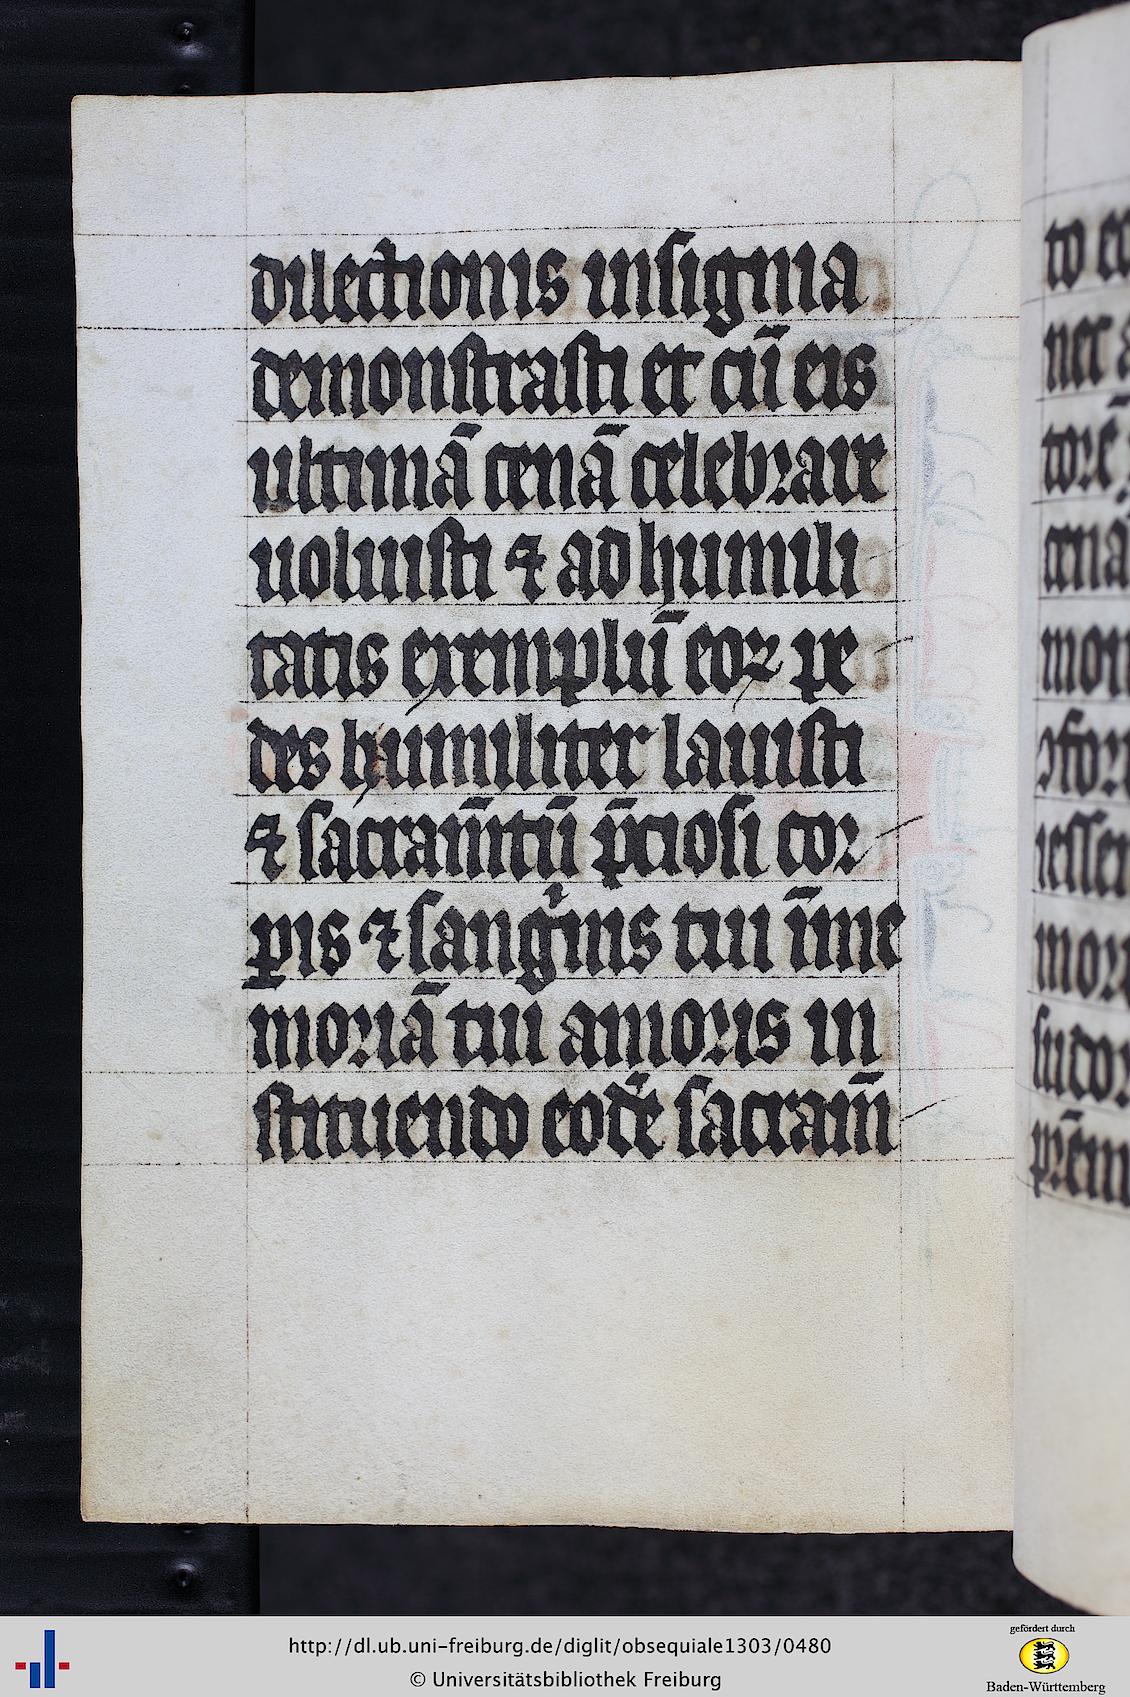 dilectionis insignia
demonstrasti et cū eis
ultimā cenā celebrare
uoluisti ⁊ ad humili
tatis exemplū eoꝝ pe
des humiliter lauisti
⁊ sacram̄tū p̄ciosi cor
ꝑis ⁊ sangⁱnis tui ī me
moriā tui amoris in
stituendo eodē sacram̄
to
nec
torē
cenā
mon
sudor
http://dl.ub.uni-freiburg.de/diglit/obsequiale1303/0480
© Universitätsbibliothek Freiburg
gefördert durch
Baden-Württemberg